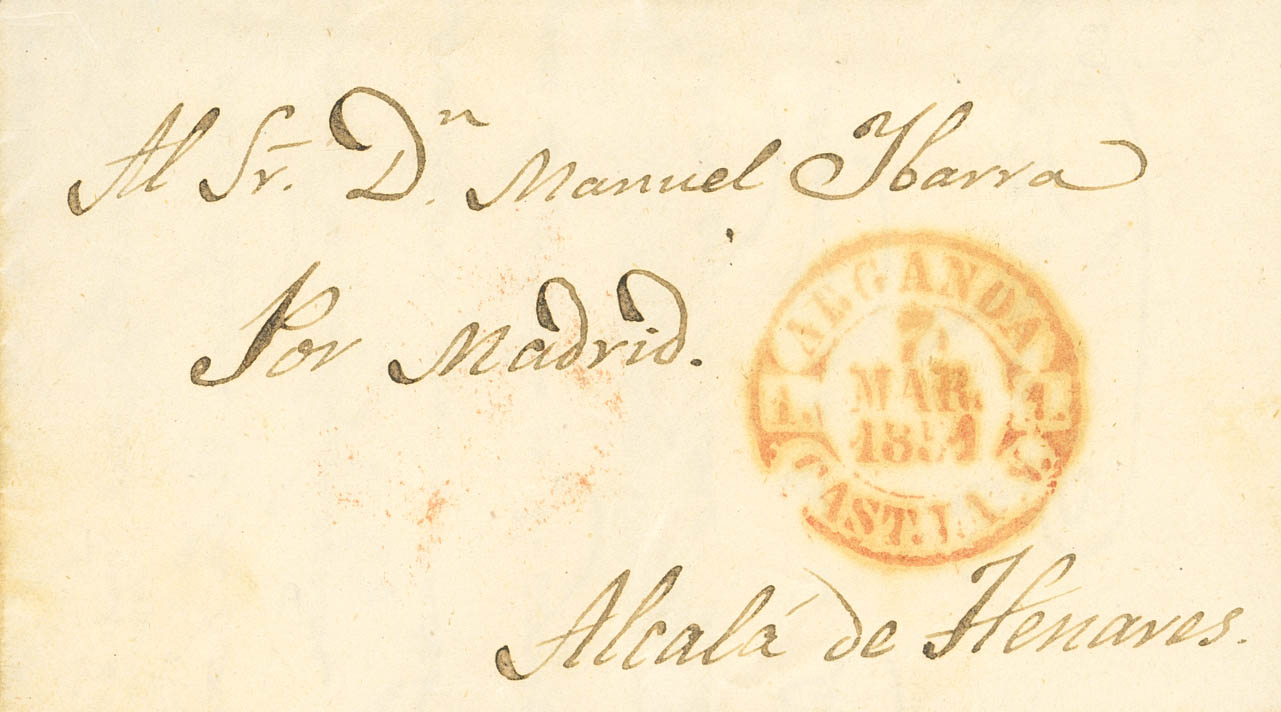 Al Sr. Dⁿ. Manuel Ibarra
Por Madrid.
AEGANDA
7
MAR.
1851
1. 1.
CAST. LA N.
Alcalá de Henares.